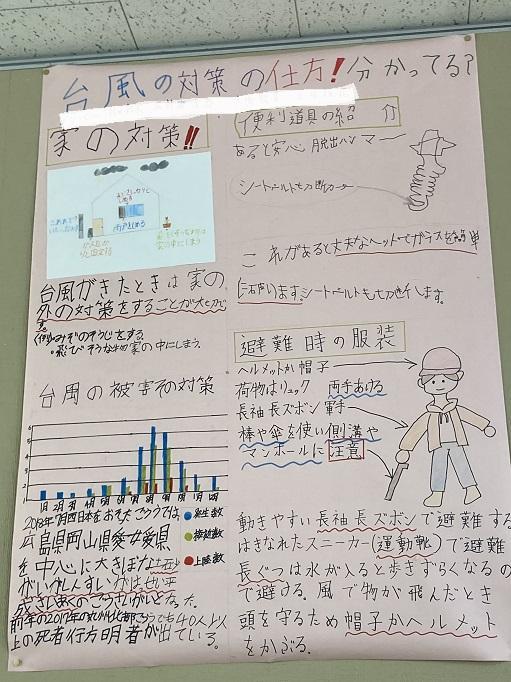 台風の対策の仕方!分かってる?
家の対策!!
雨戸をしめる
家の中にしまう
台風がきたときは家の
外の対策をすることが大切で
す。
(例)・みぞのそうじをする。
・飛びそうな物家の中にしまう。
台風の被害その対策
1月 2月 3月 4月 5月 6月 7月 8月 9月 10月 11月 12月
発生数
接近数
上陸数
2018年7月西日本をおそったごううでは、
広島県岡山県愛媛県
を中心に大きぼな
がいやしんすいがはっせい平
成さいあくのごうさいがいとなった。
前年の2017年の九州北部ごううでも40人以
上の死者行方明者が出ている。
便利道具の紹介
あると安心 脱出ハンマー
シートベルトも切断カッター
これがあると丈夫なヘッドでガラスを簡単
にわります。シートベルトも切断します。
避難時の服装
ヘルメットか帽子
荷物はリュック 両手あける
長袖長ズボン軍手
棒や傘を使い側溝や
マンホールに注意
動きやすい長袖長ズボンで避難する
はきなれたスニーカー(運動靴)で避難
長ぐつは水が入ると歩きずらくなるの
で避ける。風で物が飛んだとき
頭を守るため帽子かヘルメット
をかぶる。